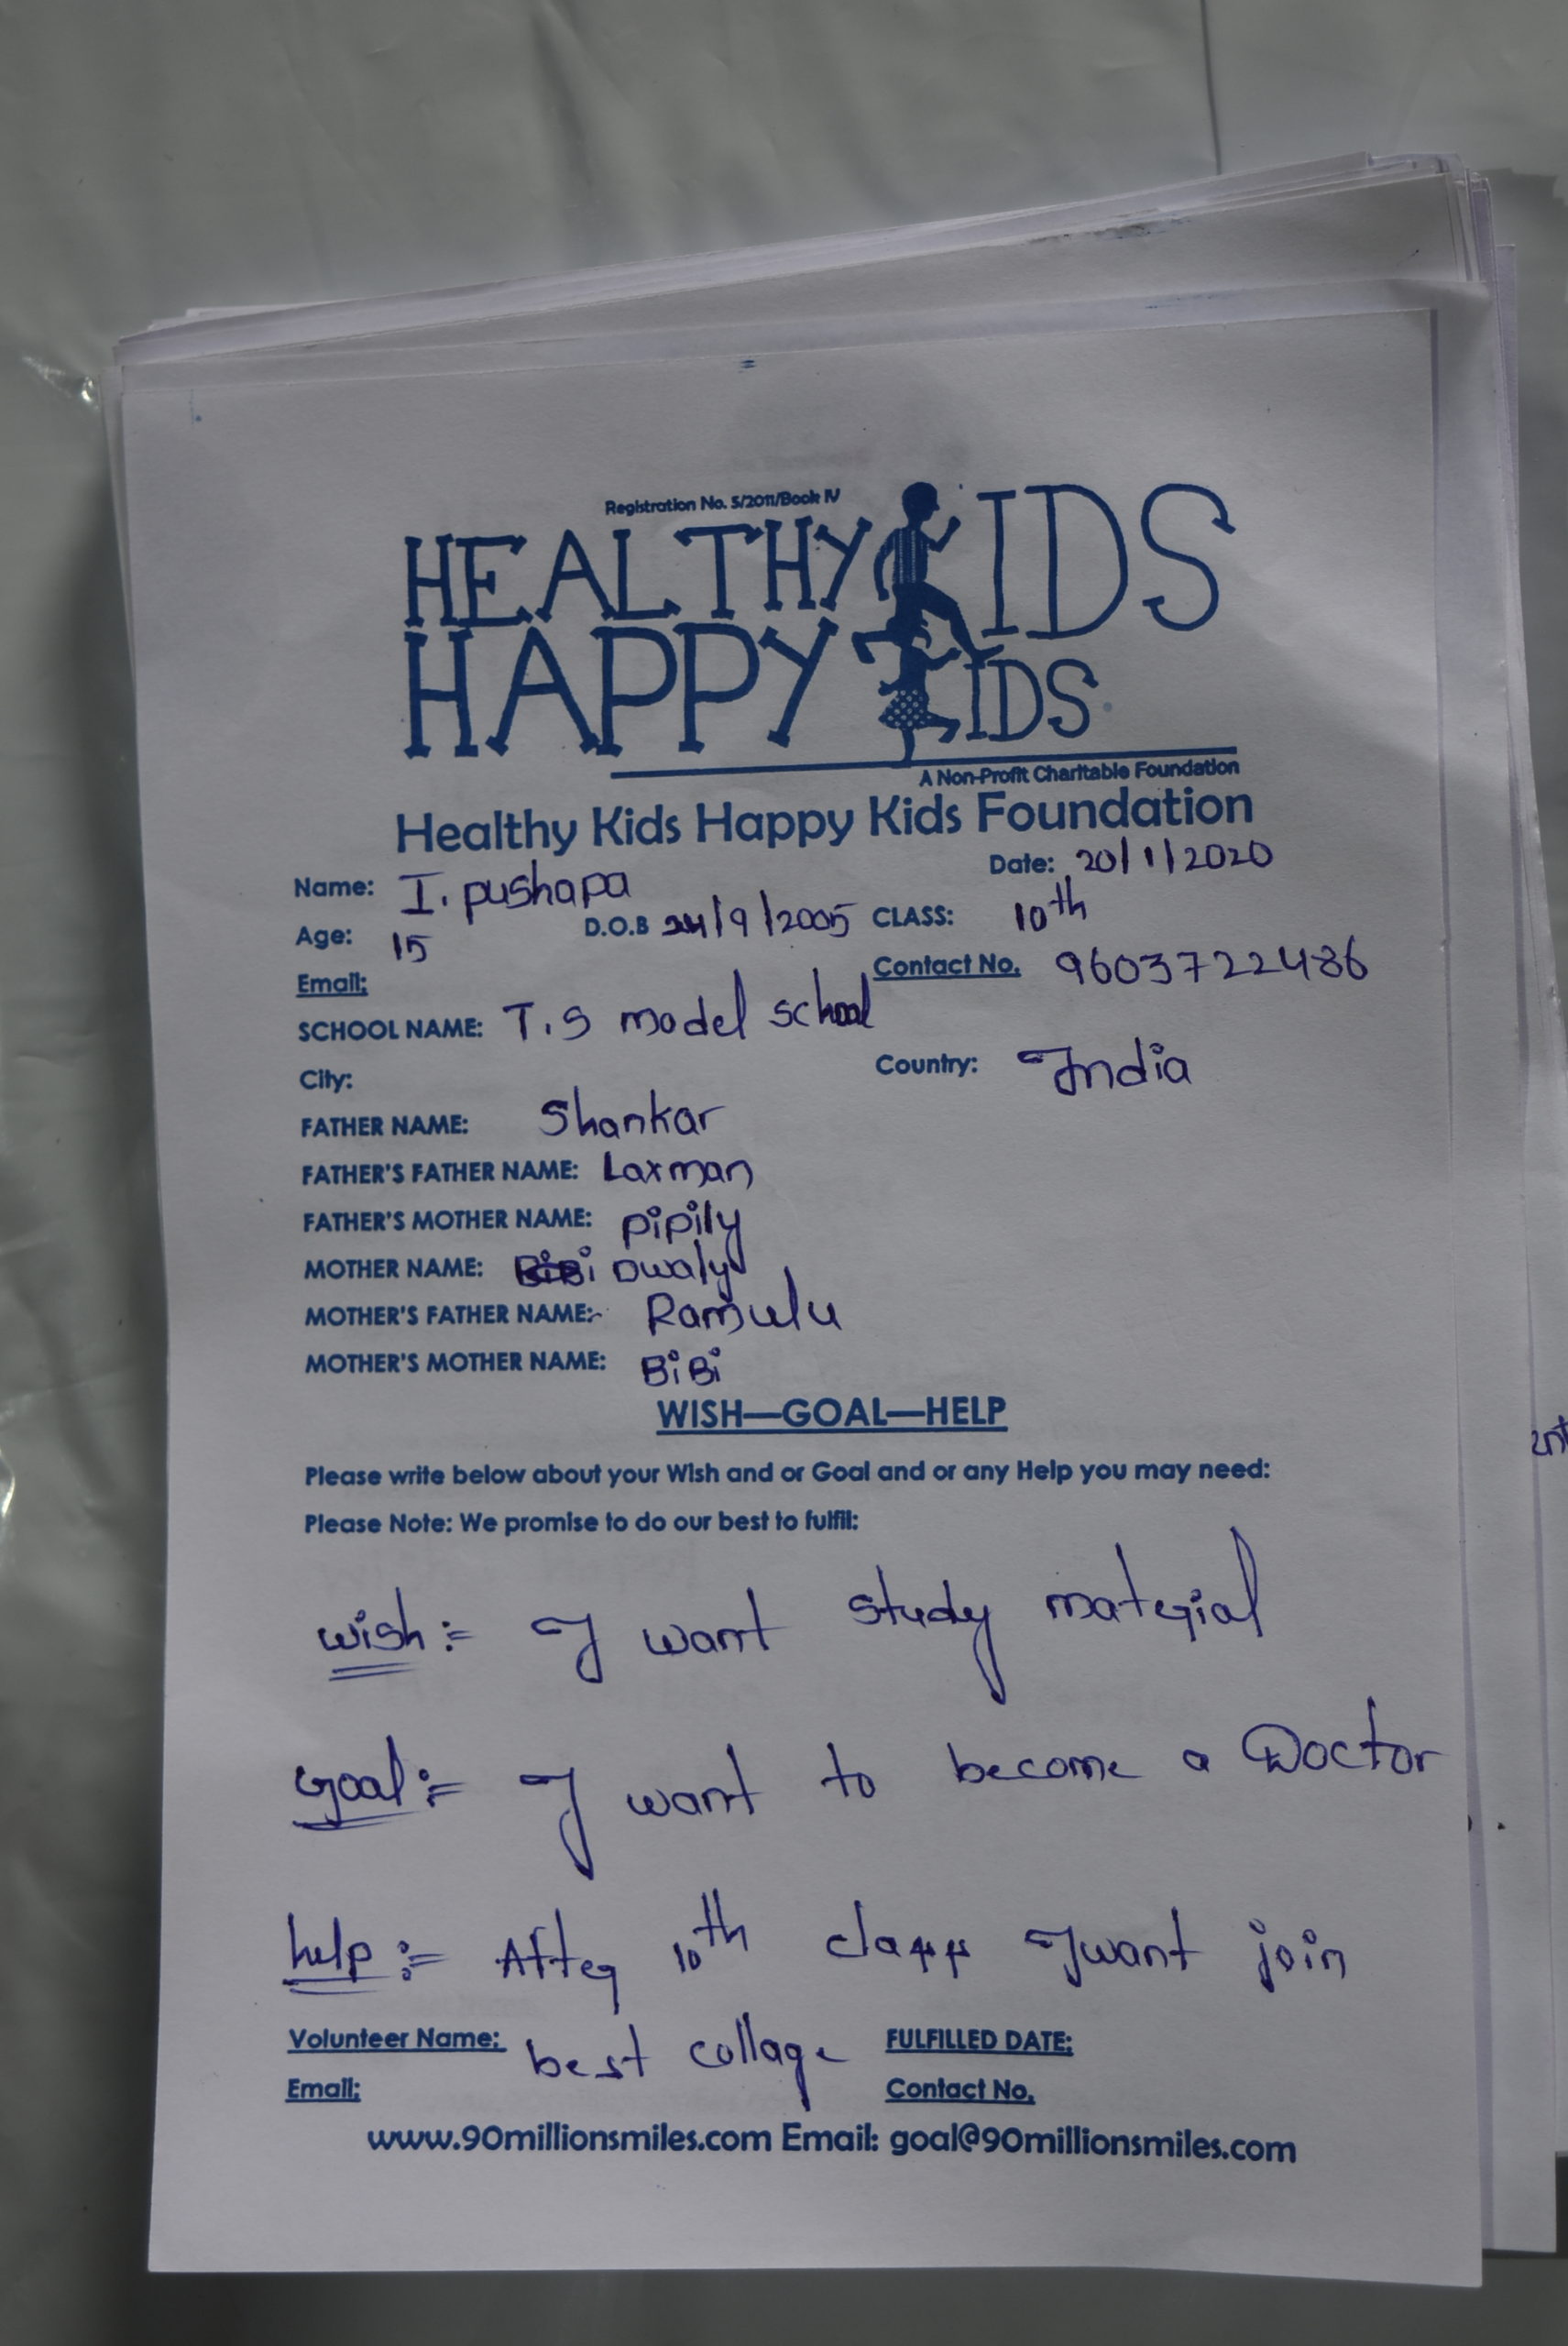 Registration No. 5/2011/Book IV
HEALTHY KIDS
HAPPY KIDS
A Non-Profit Charitable Foundation
Healthy Kids Happy Kids Foundation
Name: I. pushapa Date: 20/1/2020
Age: 15 D.O.B 24/9/2005 CLASS: 10th
Email: Contact No. 9603722486
SCHOOL NAME: T.S model school
City: Country: India
FATHER NAME: Shankar
FATHER'S FATHER NAME: Laxman
FATHER'S MOTHER NAME: pipily
MOTHER NAME: Dwaly
MOTHER'S FATHER NAME: Ramulu
MOTHER'S MOTHER NAME: BiBi
WISH—GOAL—HELP
Please write below about your Wish and or Goal and or any Help you may need:
Please Note: We promise to do our best to fulfil:
wish:- I want study material
Goal:- I want to become a Doctor
help:- After 10th class I want join
best collage
Volunteer Name: FULFILLED DATE:
Email: Contact No.
www.90millionsmiles.com Email: goal@90millionsmiles.com